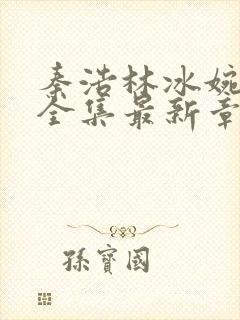 秦浩林冰婉
全集最新章
孫寶國